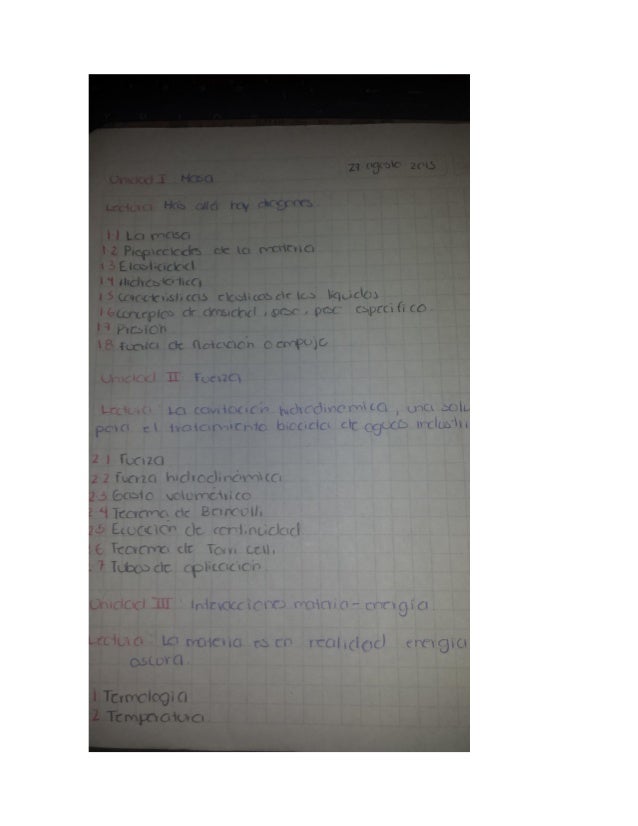 27 agosto 2015
Unidad I Masa
Lectura Más allá hay dragones.
1.1 La masa
1.2 Propiedades de la materia
1.3 Elasticidad
1.4 Hidrostatica
1.5 caracteristicas elasticas de los liquidos
1.6 conceptos de densidad, peso, peso especifico.
1.7 Presión
1.8 fuerza de flotación o empuje
Unidad II Fuerza
Lectura: La cavitación hidrodinamica, una solu
para el tratamiento biocida de aguas industri
2.1 Fuerza
2.2 Fuerza hidrodinámica
2.3 Gasto volumétrico
2.4 Teorema de
2.5 Ecuacion de continuidad
.6 Teorema de Torri celli
.7 Tubos de aplicación
Unidad III: Interacciones materia-energía
Lectura: La materia es en realidad energia
oscura.
1 Termologia
2 Temperatura